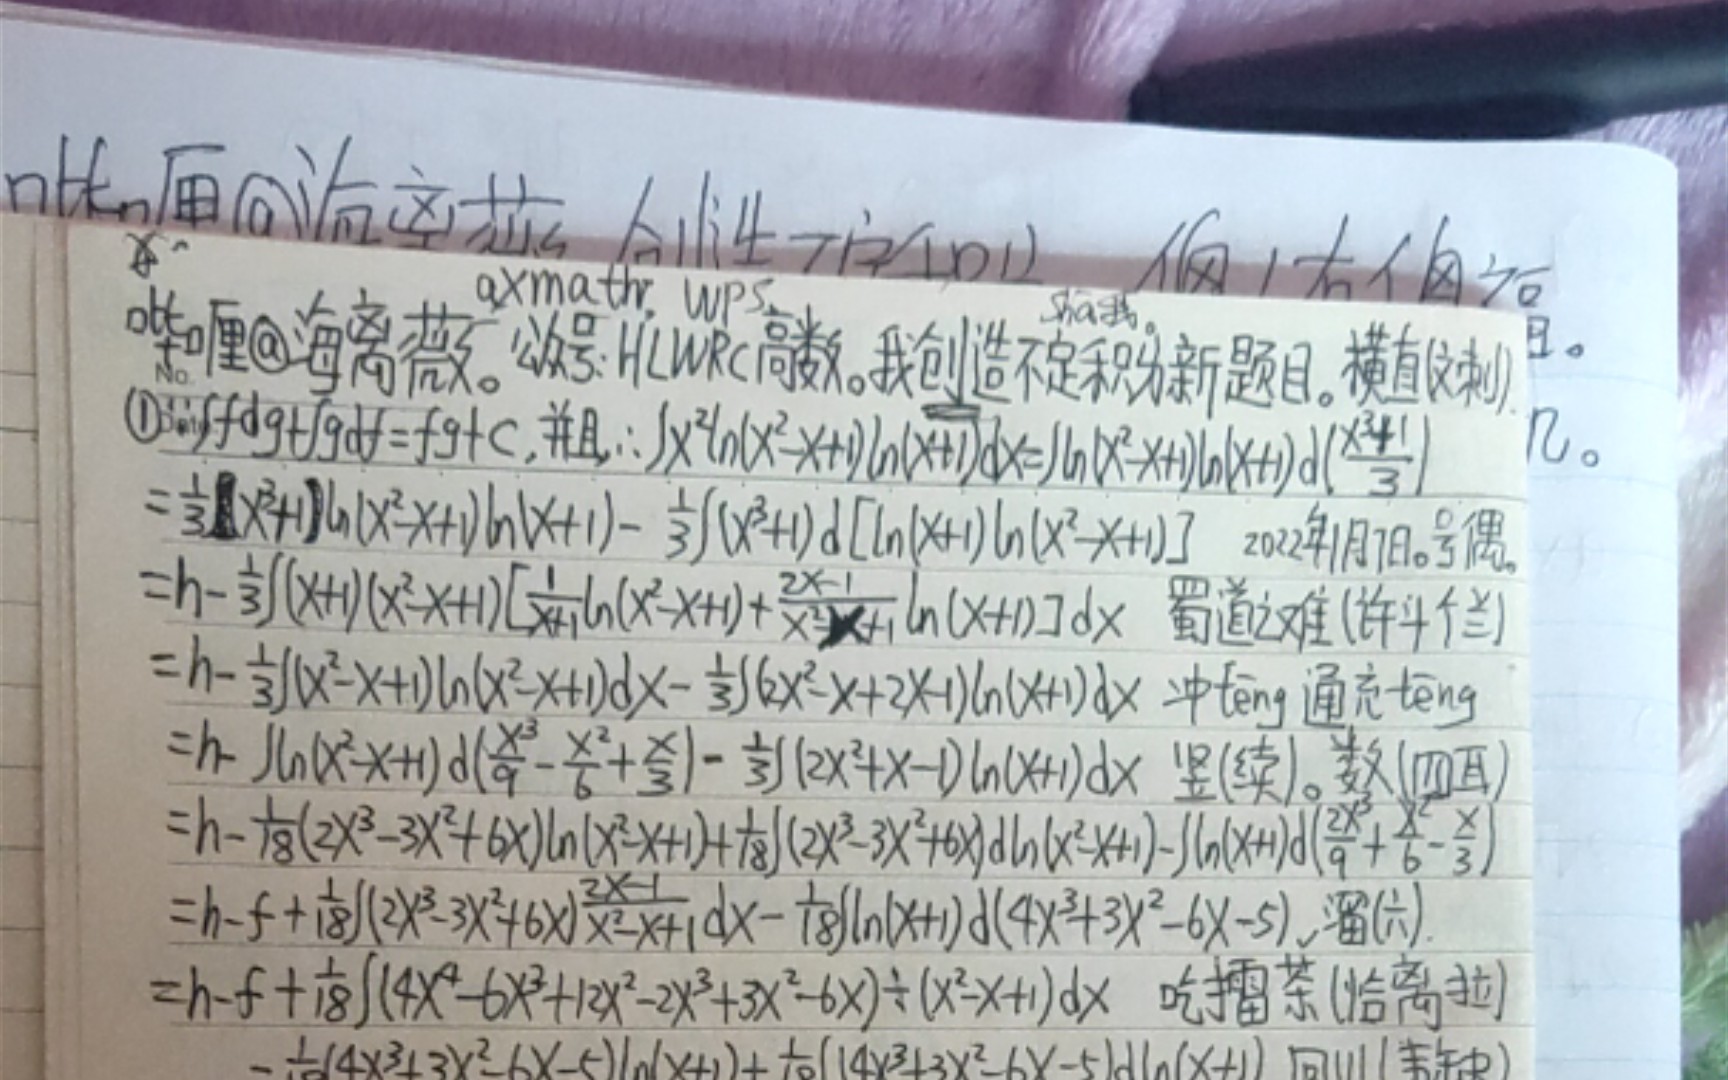 axmath. WPS.
哔哩厘@海离薇。公众号:HLWRC高数。我创造不定积分新题目。横直(文刺).
No.
①∵∫fdg+∫gdf=fg+C,并且∴∫x²ln(x²-x+1)ln(x+1)dx=∫ln(x²-x+1)ln(x+1)d(\frac{x³+1}{3})
=\frac{1}{3}(x³+1)ln(x²-x+1)ln(x+1)-\frac{1}{3}∫(x³+1)d[ln(x+1)ln(x²-x+1)] 2022年1月7日。号偶。
=h-\frac{1}{3}∫(x+1)(x²-x+1)[\frac{1}{x+1}ln(x²-x+1)+\frac{2x-1}{x²-x+1}ln(x+1)]dx 蜀道之难(许斗个兰)
=h-\frac{1}{3}∫(x²-x+1)ln(x²-x+1)dx-\frac{1}{3}∫(2x²-x+2x-1)ln(x+1)dx 冲tēng通充tēng
=h-∫ln(x²-x+1)d(\frac{x³}{9}-\frac{x²}{6}+\frac{x}{3})-\frac{1}{3}∫(2x²+x-1)ln(x+1)dx 竖(续)。数(四耳)
=h-\frac{1}{18}(2x³-3x²+6x)ln(x²-x+1)+\frac{1}{18}∫(2x³-3x²+6x)dln(x²-x+1)-∫ln(x+1)d(\frac{2x³}{9}+\frac{x²}{6}-\frac{x}{3})
=h-f+\frac{1}{18}∫(2x³-3x²+6x)\frac{2x-1}{x²-x+1}dx-\frac{1}{18}∫ln(x+1)d(4x³+3x²-6x-5)、溜(六).
=h-f+\frac{1}{18}∫(4x⁴-6x³+12x²-2x³+3x²-6x)÷(x²-x+1)dx 吃擂茶(恰离拉)
-\frac{1}{18}(4x³+3x²-6x-5)ln(x+1)+\frac{1}{18}∫(4x³+3x²-6x-5)dln(x+1)